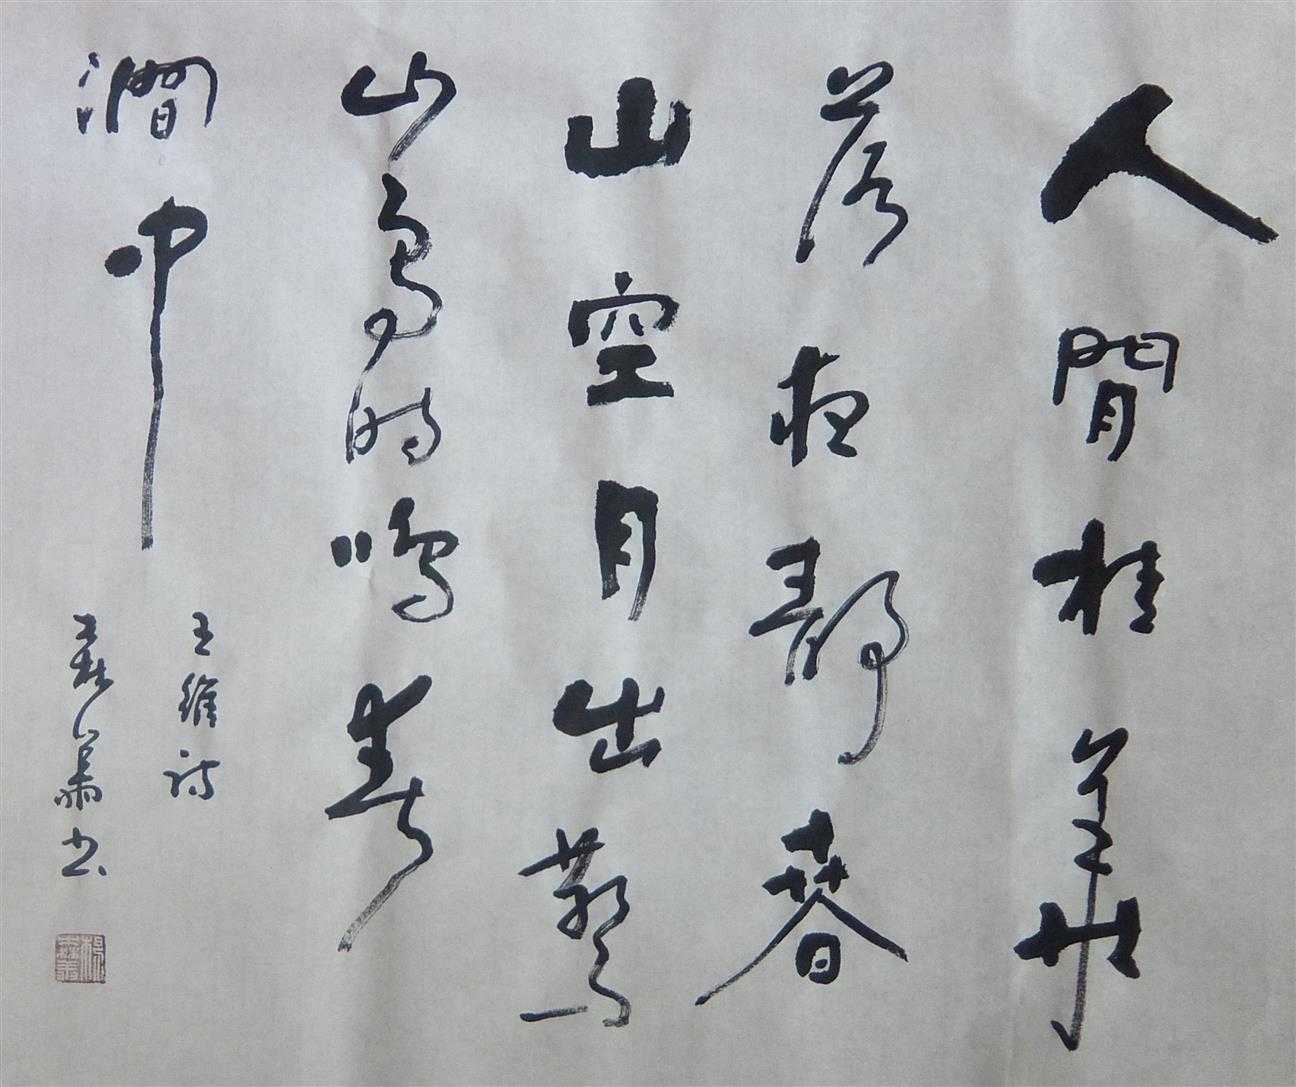 人閒桂華
落夜靜春
山空月出驚
山鳥時鳴春
澗中
王維詩
書